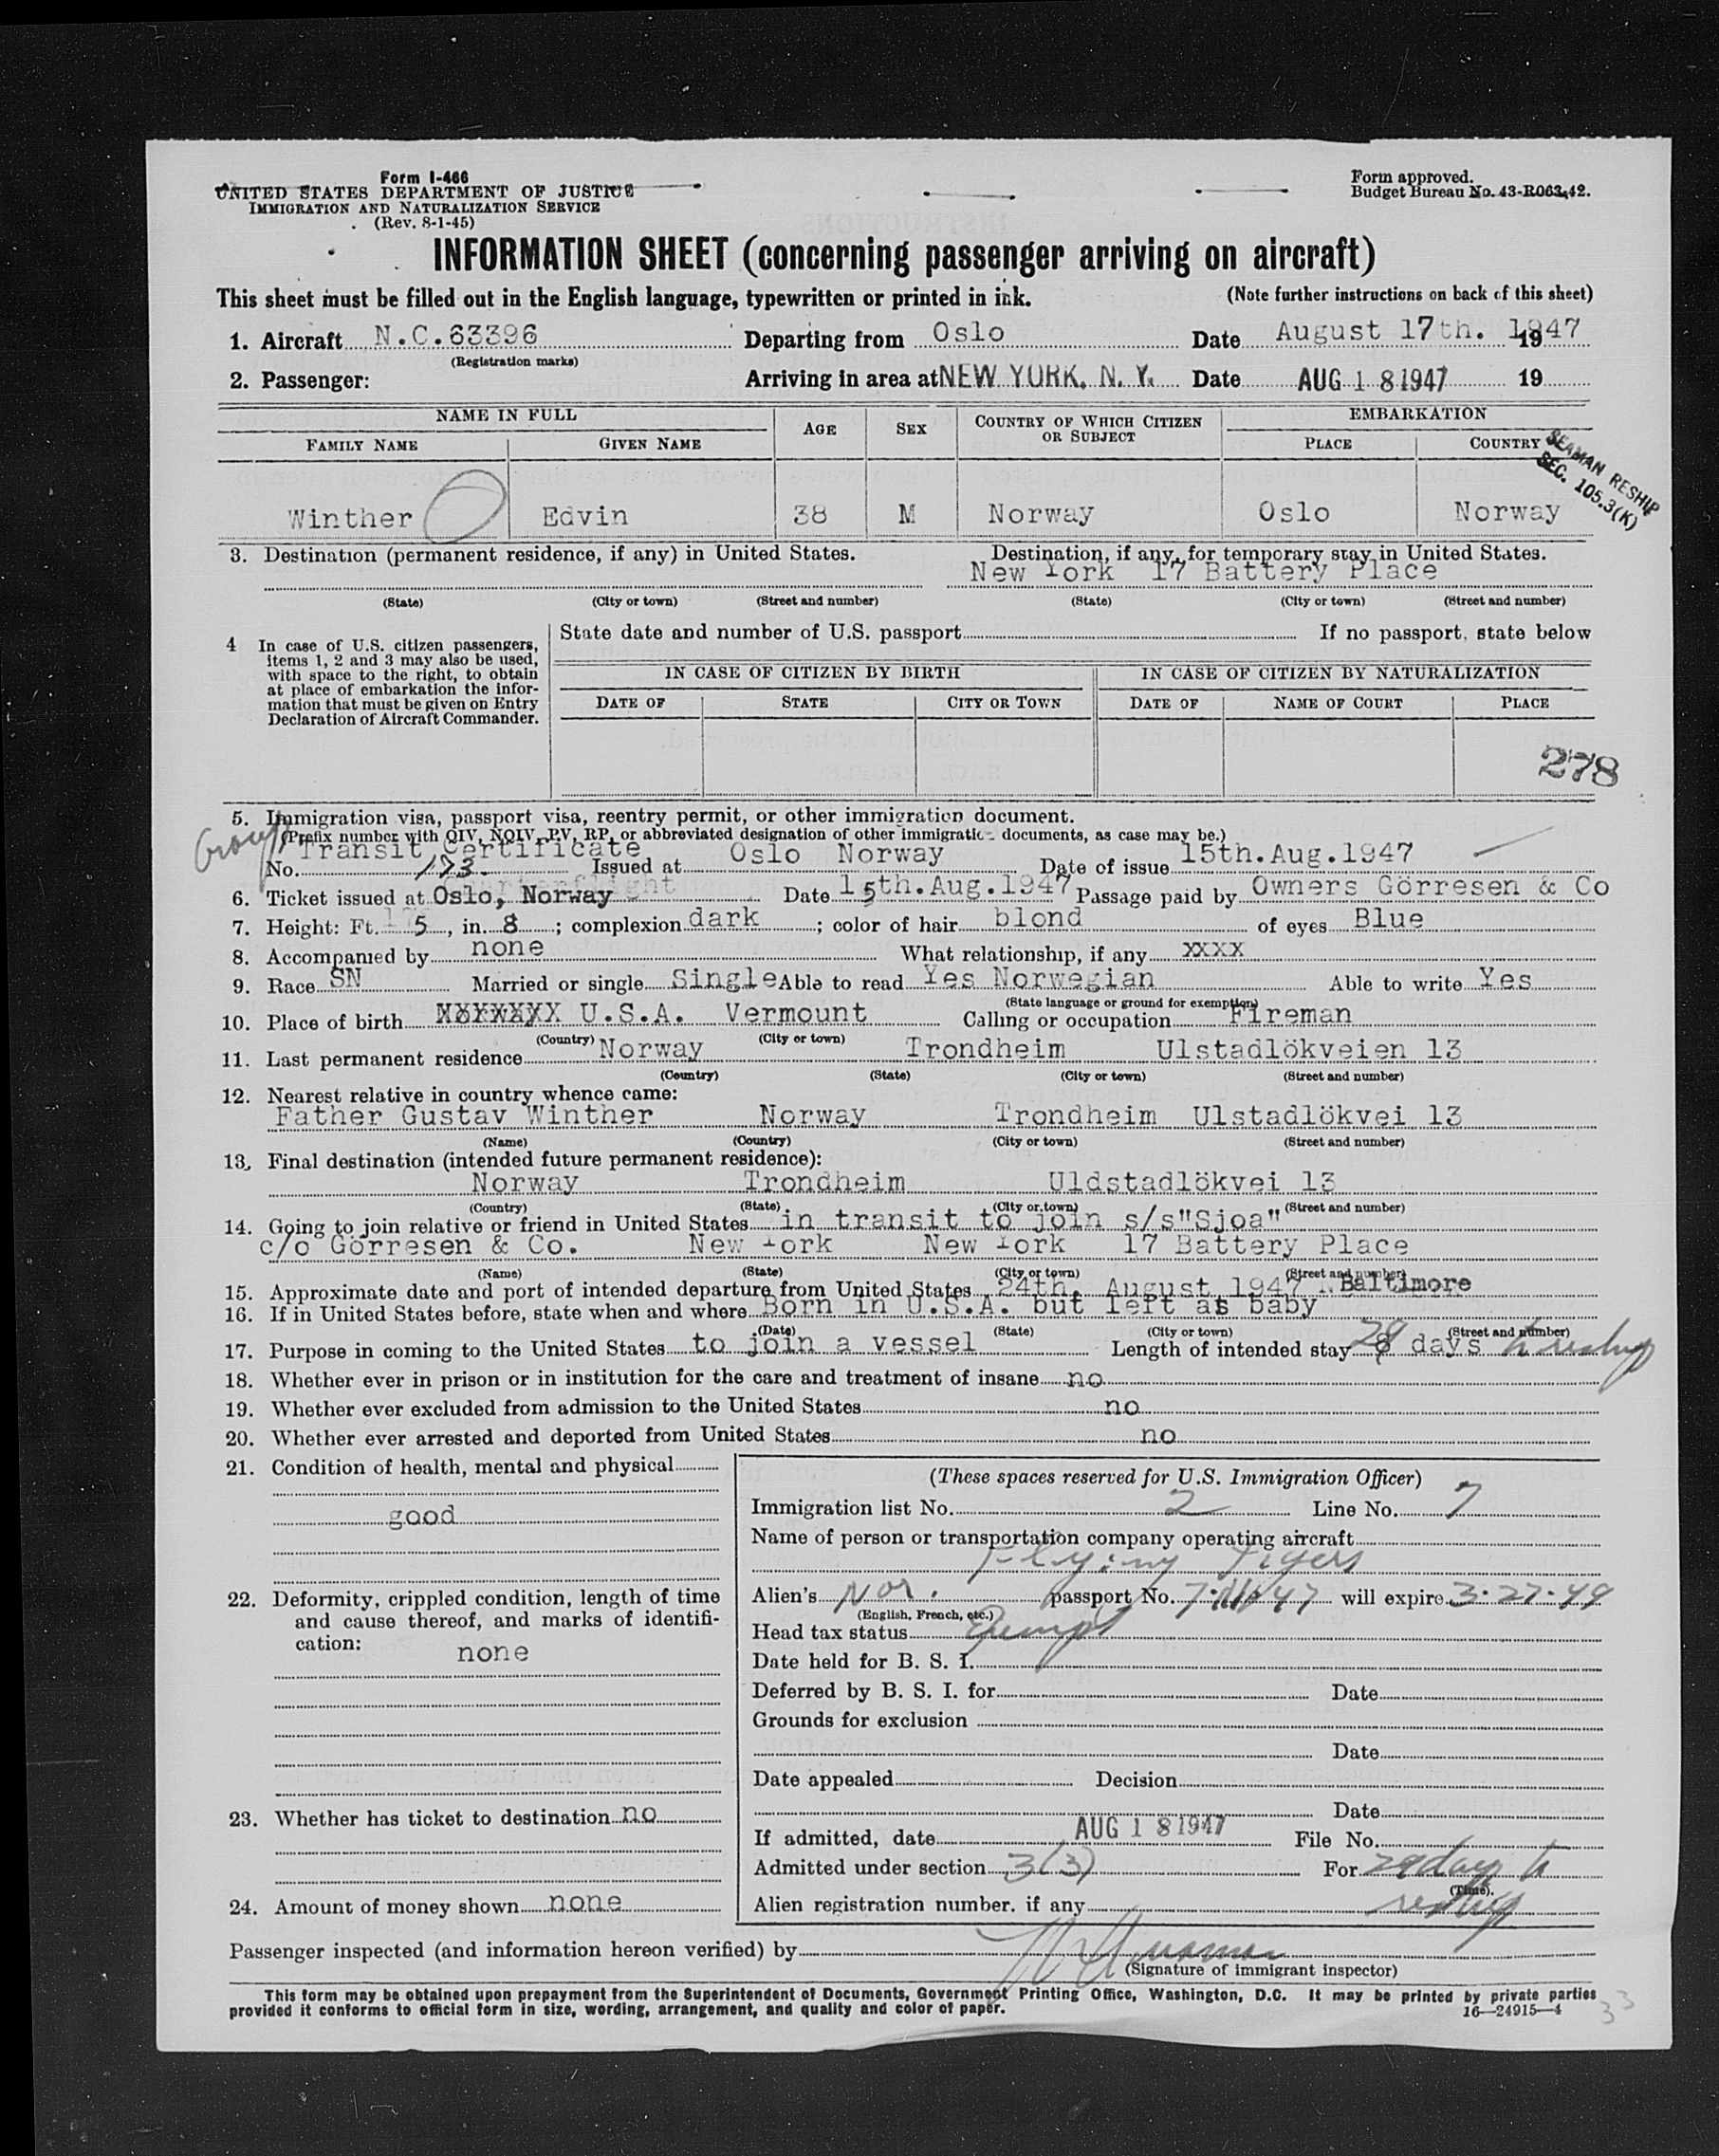 Form I-466
UNITED STATES DEPARTMENT OF JUSTICE
IMMIGRATION AND NATURALIZATION SERVICE
(Rev. 8-1-45)
Form approved.
Budget Bureau No. 43-R063.42.
INFORMATION SHEET (concerning passenger arriving on aircraft)
This sheet must be filled out in the English language, typewritten or printed in ink. (Note further instructions on back of this sheet)
1. Aircraft N.C.63396 Departing from Oslo Date August 17th. 1947
(Registration marks)
2. Passenger: Arriving in area at NEW YORK, N. Y. Date AUG 18 1947 19
NAME IN FULL AGE SEX COUNTRY OF WHICH CITIZEN OR SUBJECT EMBARKATION
FAMILY NAME GIVEN NAME PLACE COUNTRY
SEAMAN RESHIP
SEC. 105.3(K)
Winther Edvin 38 M Norway Oslo Norway
3. Destination (permanent residence, if any) in United States. Destination, if any, for temporary stay in United States.
New York 17 Battery Place
(State) (City or town) (Street and number) (State) (City or town) (Street and number)
4 In case of U.S. citizen passengers, items 1, 2 and 3 may also be used, with space to the right, to obtain at place of embarkation the information that must be given on Entry Declaration of Aircraft Commander.
State date and number of U.S. passport If no passport, state below
IN CASE OF CITIZEN BY BIRTH IN CASE OF CITIZEN BY NATURALIZATION
DATE OF STATE CITY OR TOWN DATE OF NAME OF COURT PLACE
278
5. Immigration visa, passport visa, reentry permit, or other immigration document.
(Prefix number with QIV, NQIV, PV, RP, or abbreviated designation of other immigration documents, as case may be.)
Group Transit Certificate
No. 173. Issued at Oslo Norway Date of issue 15th.Aug.1947
6. Ticket issued at Oslo, Norway Date 15th.Aug.1947 Passage paid by Owners Görresen & Co
7. Height: Ft. 5, in. 8; complexion dark; color of hair blond of eyes Blue
8. Accompanied by none What relationship, if any xxxx
9. Race SN Married or single Single Able to read Yes Norwegian Able to write Yes
(State language or ground for exemption)
10. Place of birth U.S.A. Vermount Calling or occupation Fireman
(Country) (City or town)
11. Last permanent residence Norway Trondheim Ulstadlökveien 13
(Country) (State) (City or town) (Street and number)
12. Nearest relative in country whence came:
Father Gustav Winther Norway Trondheim Ulstadlökvei 13
(Name) (Country) (City or town) (Street and number)
13. Final destination (intended future permanent residence):
Norway Trondheim Uldstadlökvei 13
(Country) (State) (City or town) (Street and number)
14. Going to join relative or friend in United States in transit to join s/s"Sjoa"
c/o Görresen & Co. New York New York 17 Battery Place
(Name) (State) (City or town) (Street and number)
15. Approximate date and port of intended departure from United States 24th. August 1947 Baltimore
16. If in United States before, state when and where Born in U.S.A. but left as baby
(Date) (State) (City or town) (Street and number)
17. Purpose in coming to the United States to join a vessel Length of intended stay 29 days to reship
18. Whether ever in prison or in institution for the care and treatment of insane no
19. Whether ever excluded from admission to the United States no
20. Whether ever arrested and deported from United States no
21. Condition of health, mental and physical
good
22. Deformity, crippled condition, length of time and cause thereof, and marks of identification:
none
23. Whether has ticket to destination no
24. Amount of money shown none
(These spaces reserved for U.S. Immigration Officer)
Immigration list No. 2 Line No. 7
Name of person or transportation company operating aircraft
Flying Tigers
Alien's Nor. passport No. will expire 3-27-49
(English, French, etc.)
Head tax status Exempt
Date held for B. S. I.
Deferred by B. S. I. for Date
Grounds for exclusion
Date
Date appealed Decision
Date
If admitted, date AUG 18 1947 File No.
Admitted under section 3(3) For 29 days to
(Time).
Alien registration number, if any reship
Passenger inspected (and information hereon verified) by
(Signature of immigrant inspector)
This form may be obtained upon prepayment from the Superintendent of Documents, Government Printing Office, Washington, D.C. It may be printed by private parties
provided it conforms to official form in size, wording, arrangement, and quality and color of paper. 16—24915—4
33